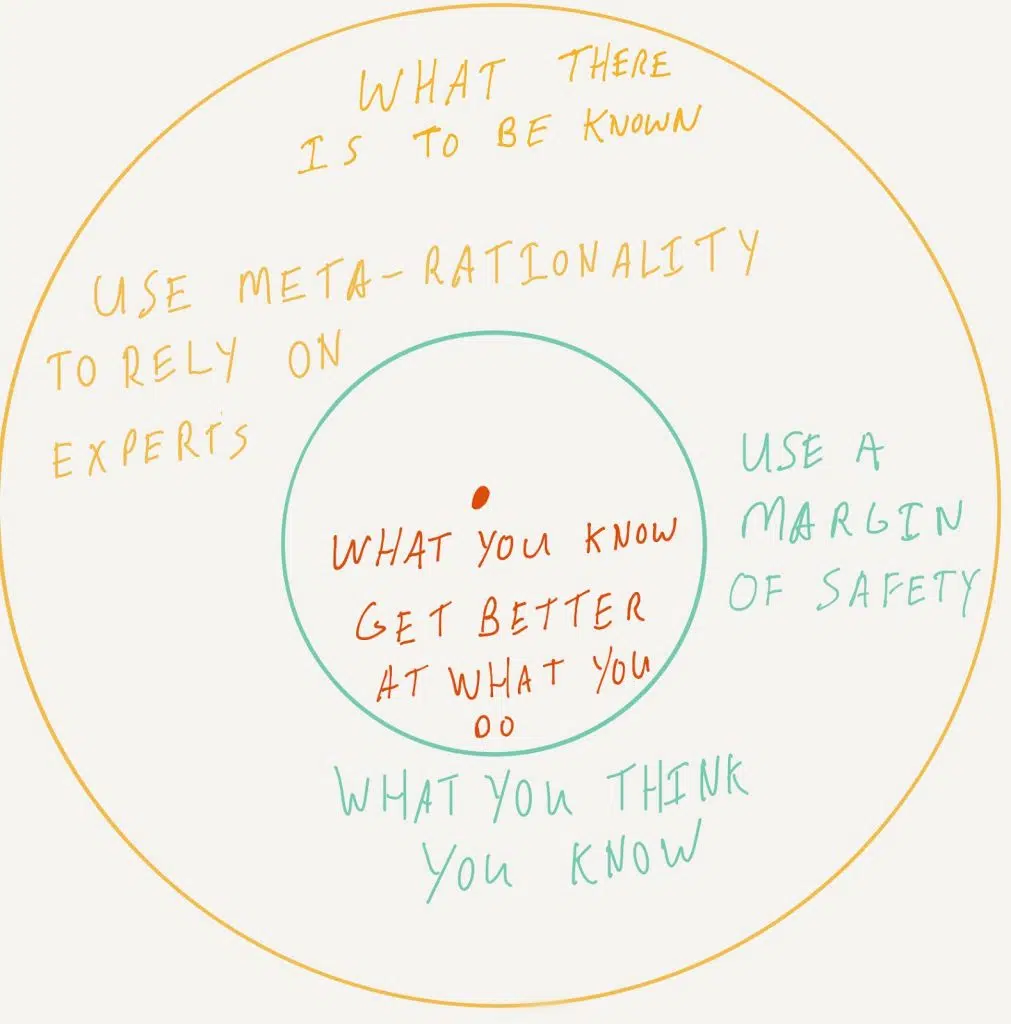 WHAT THERE
IS TO BE KNOWN
USE META-RATIONALITY
TO RELY ON
EXPERTS
USE A
MARGIN
OF SAFETY
WHAT YOU KNOW
GET BETTER
AT WHAT YOU
DO
WHAT YOU THINK
YOU KNOW